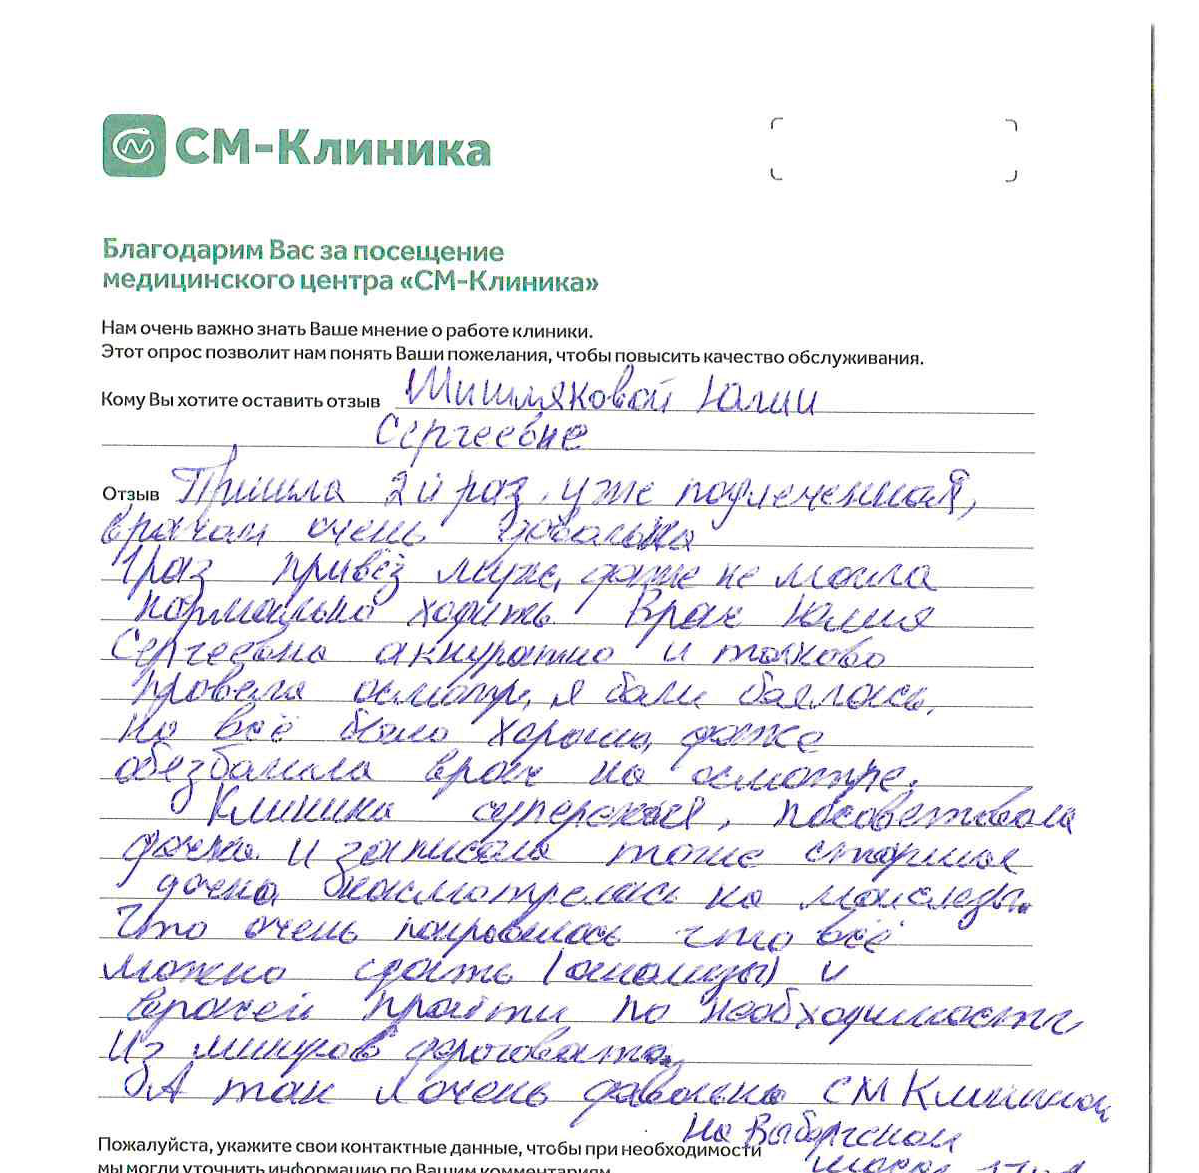 СМ-Клиника
Благодарим Вас за посещение
медицинского центра «СМ-Клиника»
Нам очень важно знать Ваше мнение о работе клиники.
Этот опрос позволит нам понять Ваши пожелания, чтобы повысить качество обслуживания.
Кому Вы хотите оставить отзыв Шишляковой Юлии
Сергеевне
Отзыв Пришла 2й раз, уже подлеченная,
врачом очень довольна
1 раз привёз муж, даже не могла
нормально ходить Врач Юлия
Сергеевна аккуратно и толково
провела осмотр, я боли боялась,
но всё было хорошо, даже
обезболила врач на осмотре.
Клиника суперская, посоветовала
дочка и записала тоже старшая
дочка, насмотрелась на мои слёзы.
Что очень понравилось что всё
можно сдать (анализы) и
врачей пройти по необходимости
Из минусов дороговато.
А так я очень довольна СМ Клиникой
на Выборгской
Пожалуйста, укажите свои контактные данные, чтобы при необходимости
мы могли уточнить информацию по Вашим комментариям